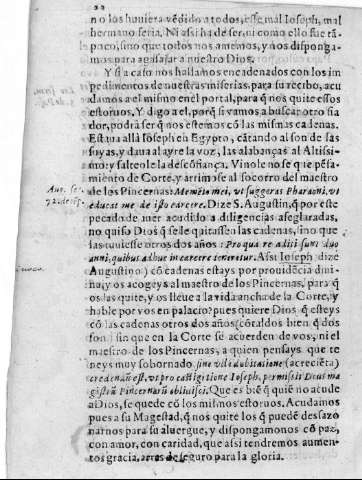 22
no los huuiera vẽdido a todos, esse mal Ioseph, mal
hermano seria. Ni assi ha de ser, ni como ello fue tã-
paco, sino que todos nos amemos, y nos disponga-
mos para agasajar a nuestro Dios.
Y si a caso nos hallamos encadenados con los im
pedimentos de nuestras miserias, para su recibo, acu
damos a el mismo en el portal, para q̃ nos quite essos
estoruos. Y digo a el, porq̃ si vamos a buscar otro sia
dor, podrà ser q̃ nos estemos cõ las mismas cadenas.
Estaua allà Ioseph en Egypto, cãtando al son de las
suyas, y daua al ayre la voz, las alabanças al Altissi-
mo: y salteole la descõfiança. Vinole no se q̃ pẽsa-
miento de Corte, y arrimose al socorro del maestro
de los Pincernas: Memẽto mei, vt suggeras Pharaoni, vt
educat me de isto carcere. Dize S. Augustin, q̃ por este
pecado de auer acudido a diligencias aseglaradas,
no quiso Dios q̃ se le quitassen las cadenas, sino que
las tuuiesse otros dos años: Pro qua re adisi sunt duo
anni, quibus adhuc in carcere teneretur. Assi Ioseph (dizẽ
Augustino) cõ cadenas estays por prouidẽcia diui-
na, y os acogeys al maestro de los Pincernas, para q̃
os las quite, y os lleue a la vida ancha de la Corte, y
hable por vos en palacio? pues quiere Dios q̃ esteys
cõ las cadenas otros dos años (cõtaldos bien q̃ dos
son) sin que en la Corte se acuerden de vos, ni el
maestro de los Pincernas, a quien pensays que te
neys muy sobornado sine vlla dubitatione (acreciẽta)
credendum est, vt pro castigatione Ioseph, permissit Deus ma
gistrũ Pincernarũ obliuisci. Que es biẽ q̃ quiẽ no acude
a Dios, se quede cõ los mismos estoruos. Acudamos
pues a su Magestad, q̃ nos quite los q̃ puedẽ dessazo
narnos para su aluergue, y dispongamonos cõ paz,
con amor, con caridad, que assi tendremos aumen-
tos gracia, arras de seguro para la gloria.